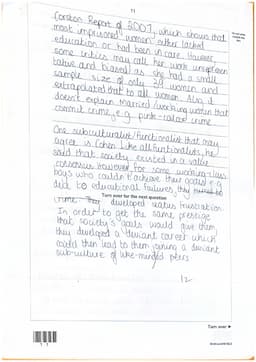 11
Corston Report of 2007, which shows that
most imprisoned women either lacked
education or had been in care. However,
some critics may call her work unrepresen
tative and biased as she had a small
sample size of only 39 women and
extrapolated that to all women. Also it
doesn't explain married/working women that
commit crime e.g. pink-collar crime
One subculturalist/functionalist that may
agree is Cohen. Like all functionalists, he
said that society existed in a value
consensus however for some working-class
boys who couldn't achieve their goals e.g.
due to educational failures, they
Turn over for the next question
crime. They developed status frustration
In order to get the same prestige
that society's goals would give them,
they developed a deviant career which
could then lead to them joining a deviant
sub-culture of like-minded peers
12
Turn over ►
11